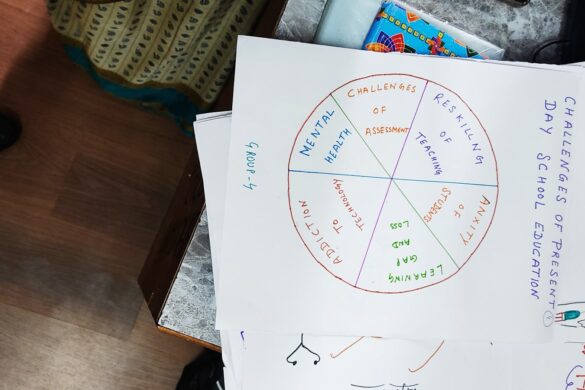 CHALLENGES OF PRESENT
DAY SCHOOL EDUCATION
4
CHALLENGES
OF
ASSESSMENT
RESKILLNG
OF
TEACHING
ANXITY
OF
STUDENTS
LEARNING
GAP
AND
LOSS
ADDICTION
TO
TECHNOLOGY
MENTAL
HEALTH
GROUP-4